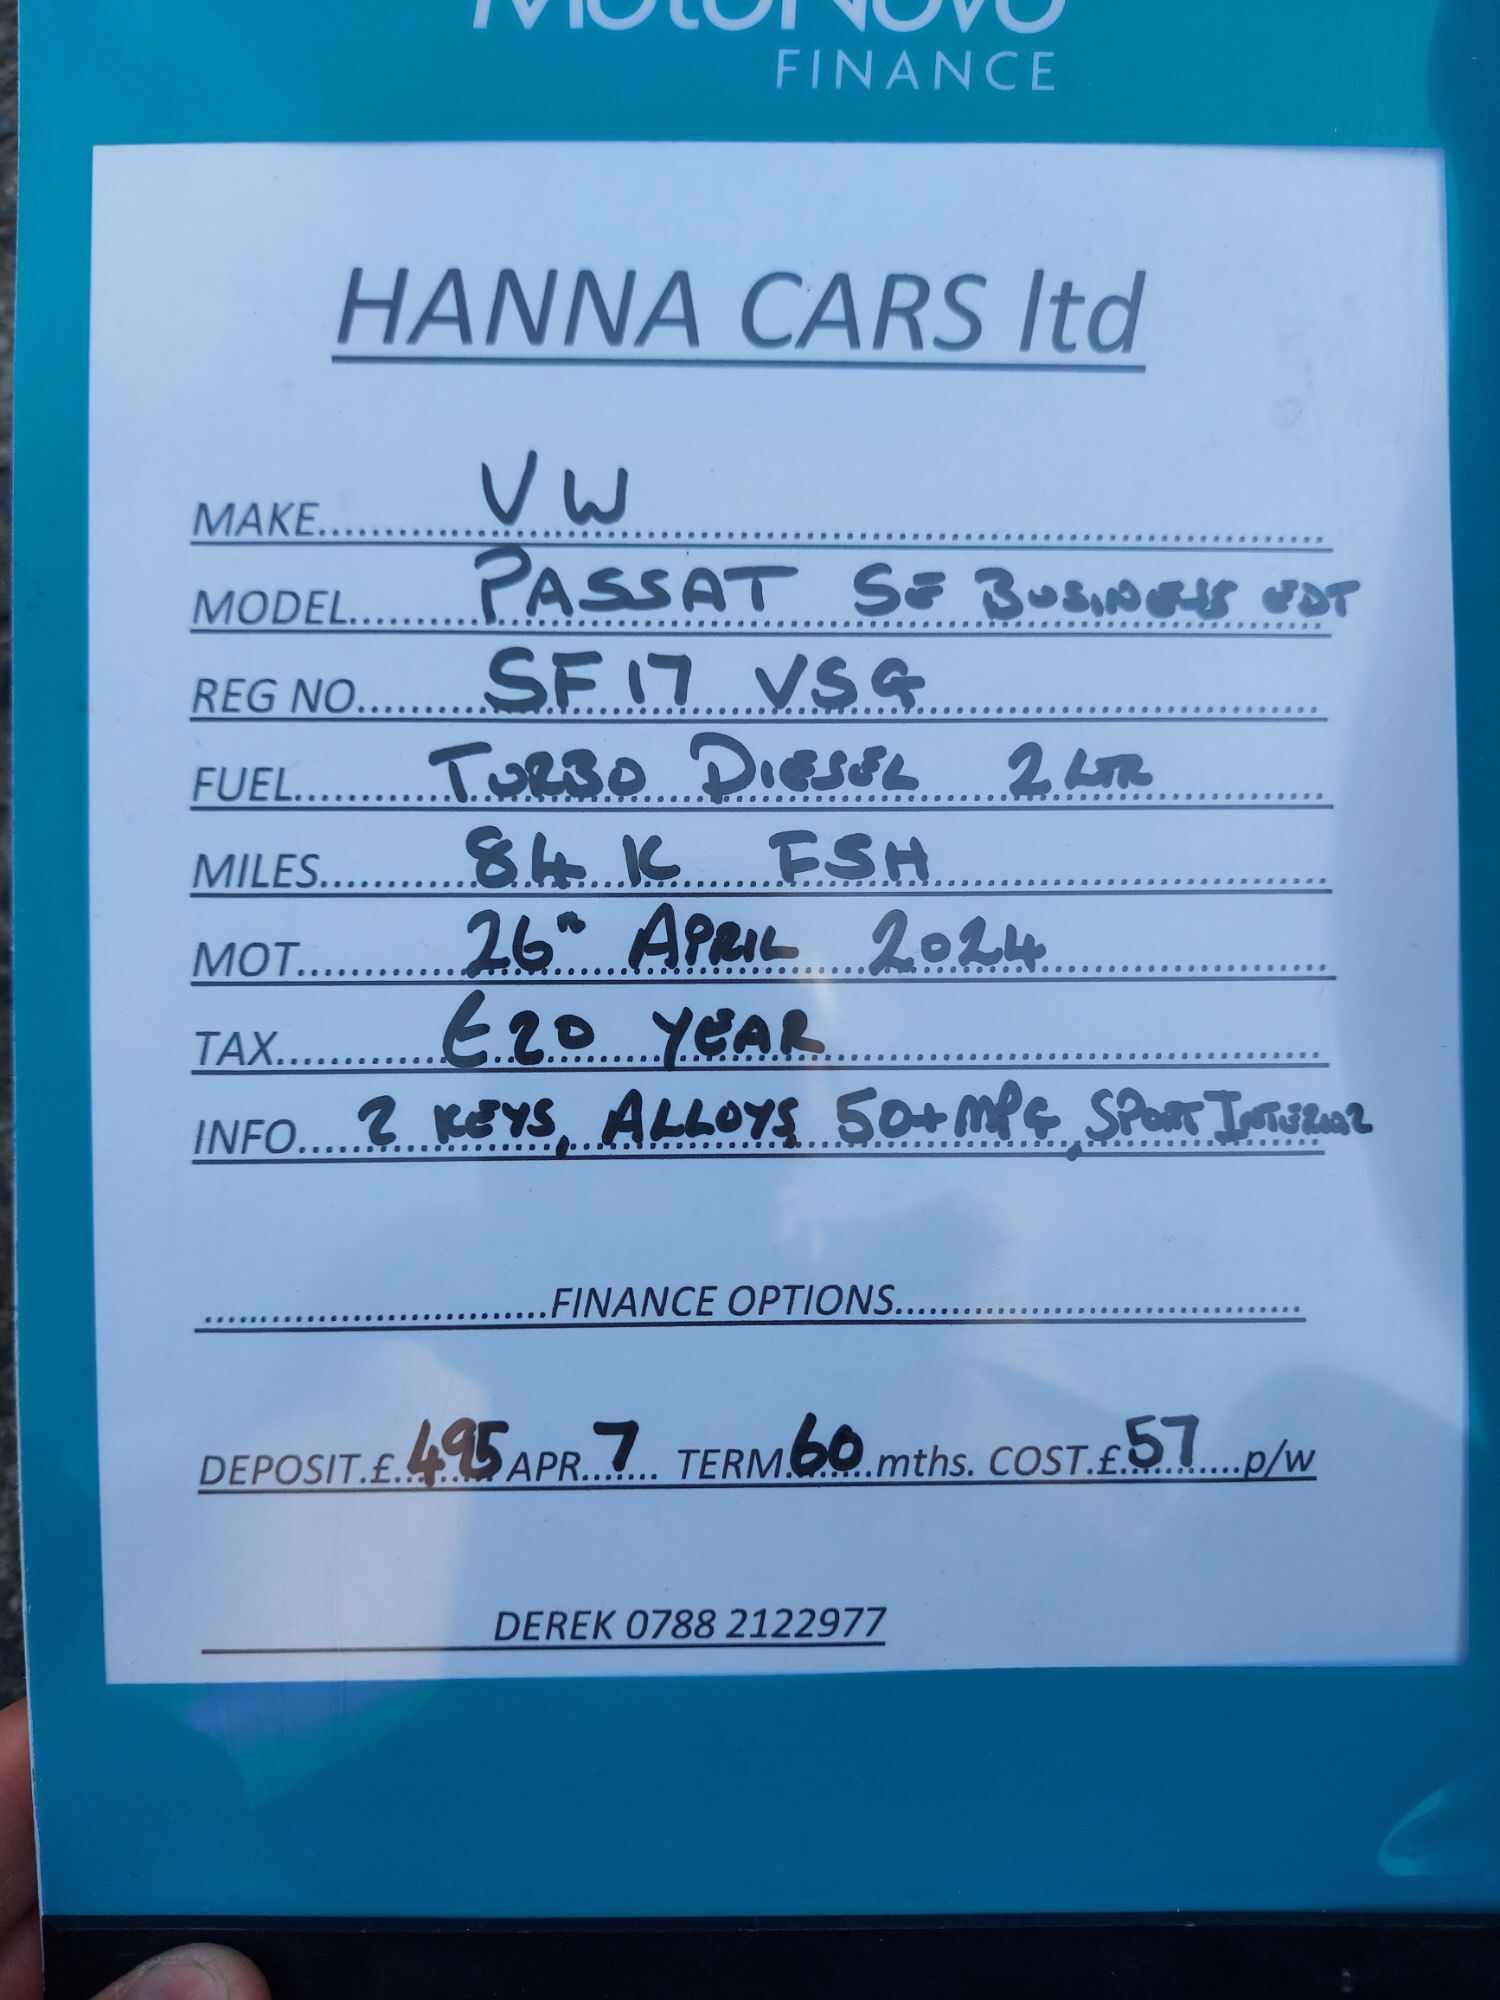 MotoNovo
FINANCE
HANNA CARS ltd
MAKE........VW........
MODEL........PASSAT SE BUSINESS EDT
REG NO........SF17 VSG........
FUEL........TURBO DIESEL 2 LTR........
MILES........84K FSH........
MOT........26TH APRIL 2024........
TAX........£20 YEAR........
INFO....2 KEYS, ALLOYS, 50+MPG, SPORT INTERIOR
........FINANCE OPTIONS........
DEPOSIT.£.495 APR.7... TERM.60.mths. COST.£.57...p/w
DEREK 0788 2122977